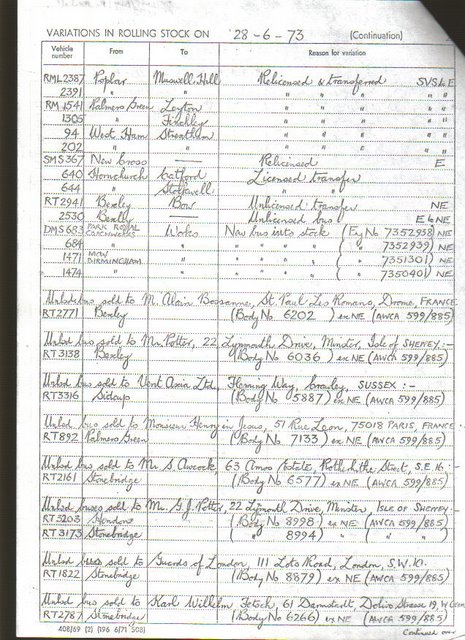 VARIATIONS IN ROLLING STOCK ON 28-6-73 (Continuation)
Vehicle number From To Reason for variation
RML2387 Poplar Muswell Hill Relicensed & transferred SVS to E
2391 " " " " " " "
RM1541 Palmers Green Leyton " " " " "
1305 " Finchley " " " " "
94 West Ham Streatham " " " " "
202 " " " " " " "
SMS367 New Cross — Relicensed E
640 Hornchurch Catford Licensed transfer
644 " Stockwell " "
RT2941 Bexley Bow Unlicensed transfer NE
2530 Bexley — Unlicensed bus E to NE
DMS683 PARK ROYAL COACHWORKS Works New bus into stock (Eng No 7352958) NE
684 " " " " " " ( " " 7352939) NE
1471 MCW BIRMINGHAM " " " " " ( " " 7351301) NE
1474 " " " " " " ( " " 7350401) NE
Unlsd bus sold to M. Alain Bossanne, St. Paul Les Romans, Drome, FRANCE
RT2771 Bexley (Body No 6202 ) ex NE (AWCA 599/885)
Unlsd bus sold to Mr. Potter, 22 Lynmouth Drive, Minster, Isle of SHEPPEY:-
RT3138 Bexley (Body No 6036 ) ex NE (AWCA 599/885)
Unlsd bus sold to Vent Axia Ltd, Fleming Way, Crawley, SUSSEX :-
RT3316 Sidcup (Body No 5887) ex NE (AWCA 599/885)
Unlsd bus sold to Monsieur Henry 51 Rue Leon, 75018 PARIS, FRANCE
RT892 Palmers Green (Body No 7133) ex NE (AWCA 599/885)
Unlsd bus sold to Mr S. 63 Amos Estate, Rotherhithe Street, S.E.16:-
RT2161 Stonebridge (Body No 6577) ex NE (AWCA 599/885)
Unlsd buses sold to Mr. G.J. Potter, 22 Lynmouth Drive, Minster, ISLE OF SHEPPEY:-
RT3203 Hendon (Body No 8998 ) ex NE (AWCA 599/885)
RT3173 Stonebridge ( " 8994 ) " " ( " " )
Unlsd bus sold to Guards of London, 111 Lots Road, London, S.W.10.
RT1822 Stonebridge (Body No 8879) ex NE (AWCA 599/885)
Unlsd bus sold to Karl Wilhelm 61 Darmstadt, Strasse 19, W
RT2787 Stonebridge (Body No 6266) ex NE (AWCA 599/885)
408/69 (2) (196 6/71 508) Continued over